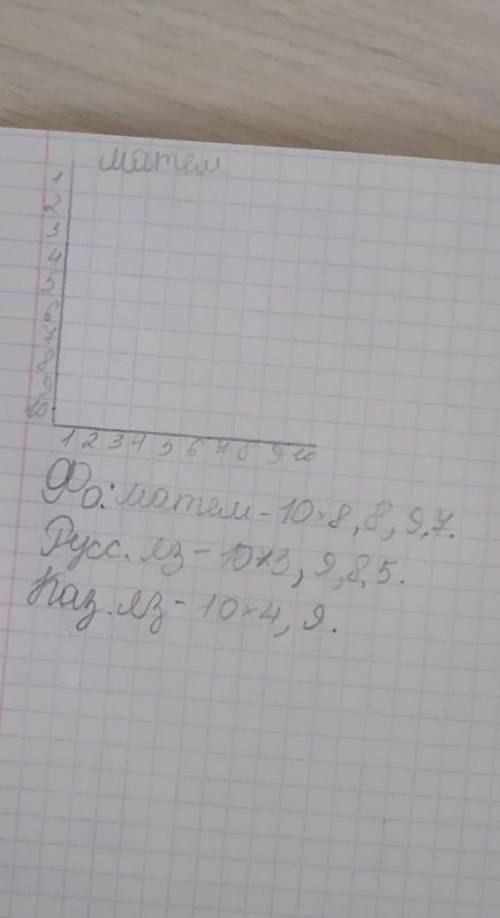 матем
1
2
3
4
5
6
7
8
9
10
1 2 3 4 5 6 7 8 9 10
ФО: матем - 10×8, 8, 9, 7.
Русс. яз - 10×3, 9, 8, 5.
Каз. яз - 10×4, 9.